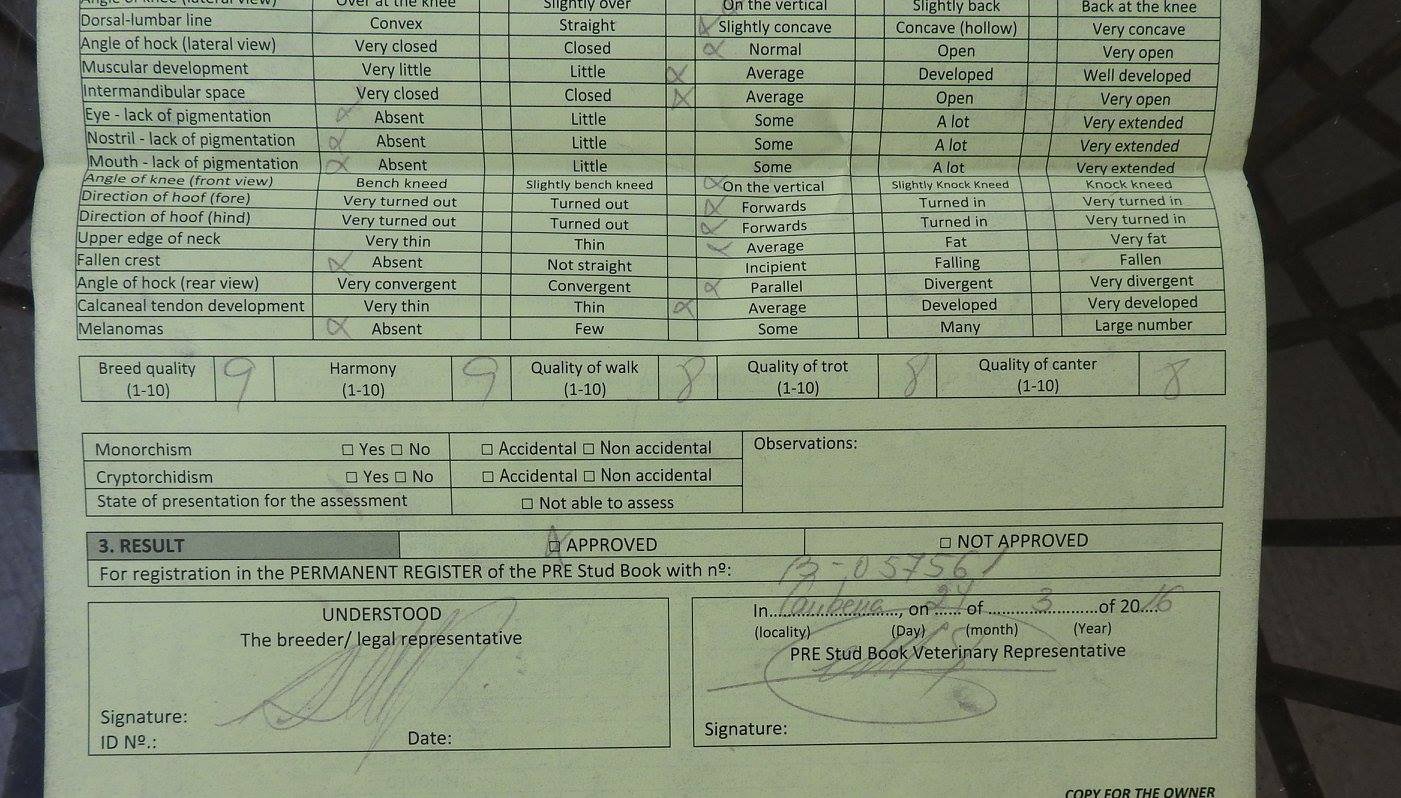 Angle of knee (lateral view) Over at the knee Slightly over On the vertical Slightly back Back at the knee
Dorsal-lumbar line Convex Straight Slightly concave Concave (hollow) Very concave
Angle of hock (lateral view) Very closed Closed Normal Open Very open
Muscular development Very little Little Average Developed Well developed
Intermandibular space Very closed Closed Average Open Very open
Eye - lack of pigmentation Absent Little Some A lot Very extended
Nostril - lack of pigmentation Absent Little Some A lot Very extended
Mouth - lack of pigmentation Absent Little Some A lot Very extended
Angle of knee (front view) Bench kneed Slightly bench kneed On the vertical Slightly Knock Kneed Knock kneed
Direction of hoof (fore) Very turned out Turned out Forwards Turned in Very turned in
Direction of hoof (hind) Very turned out Turned out Forwards Turned in Very turned in
Upper edge of neck Very thin Thin Average Fat Very fat
Fallen crest Absent Not straight Incipient Falling Fallen
Angle of hock (rear view) Very convergent Convergent Parallel Divergent Very divergent
Calcaneal tendon development Very thin Thin Average Developed Very developed
Melanomas Absent Few Some Many Large number
Breed quality (1-10) 9 Harmony (1-10) 9 Quality of walk (1-10) 8 Quality of trot (1-10) 8 Quality of canter (1-10) 8
Monorchism □ Yes □ No □ Accidental □ Non accidental Observations:
Cryptorchidism □ Yes □ No □ Accidental □ Non accidental
State of presentation for the assessment □ Not able to assess
3. RESULT □ APPROVED □ NOT APPROVED
For registration in the PERMANENT REGISTER of the PRE Stud Book with nº: 13-057561
UNDERSTOOD
The breeder/ legal representative
Signature:
ID Nº.: Date:
In...................., on 24 of 3 of 2016
(locality) (Day) (month) (Year)
PRE Stud Book Veterinary Representative
Signature:
COPY FOR THE OWNER